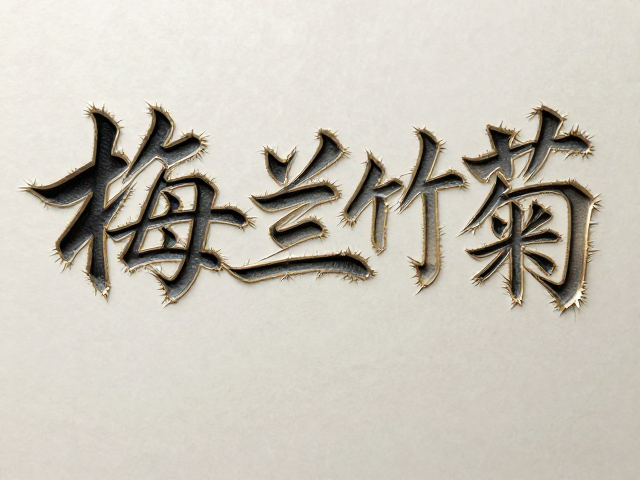 梅兰竹菊